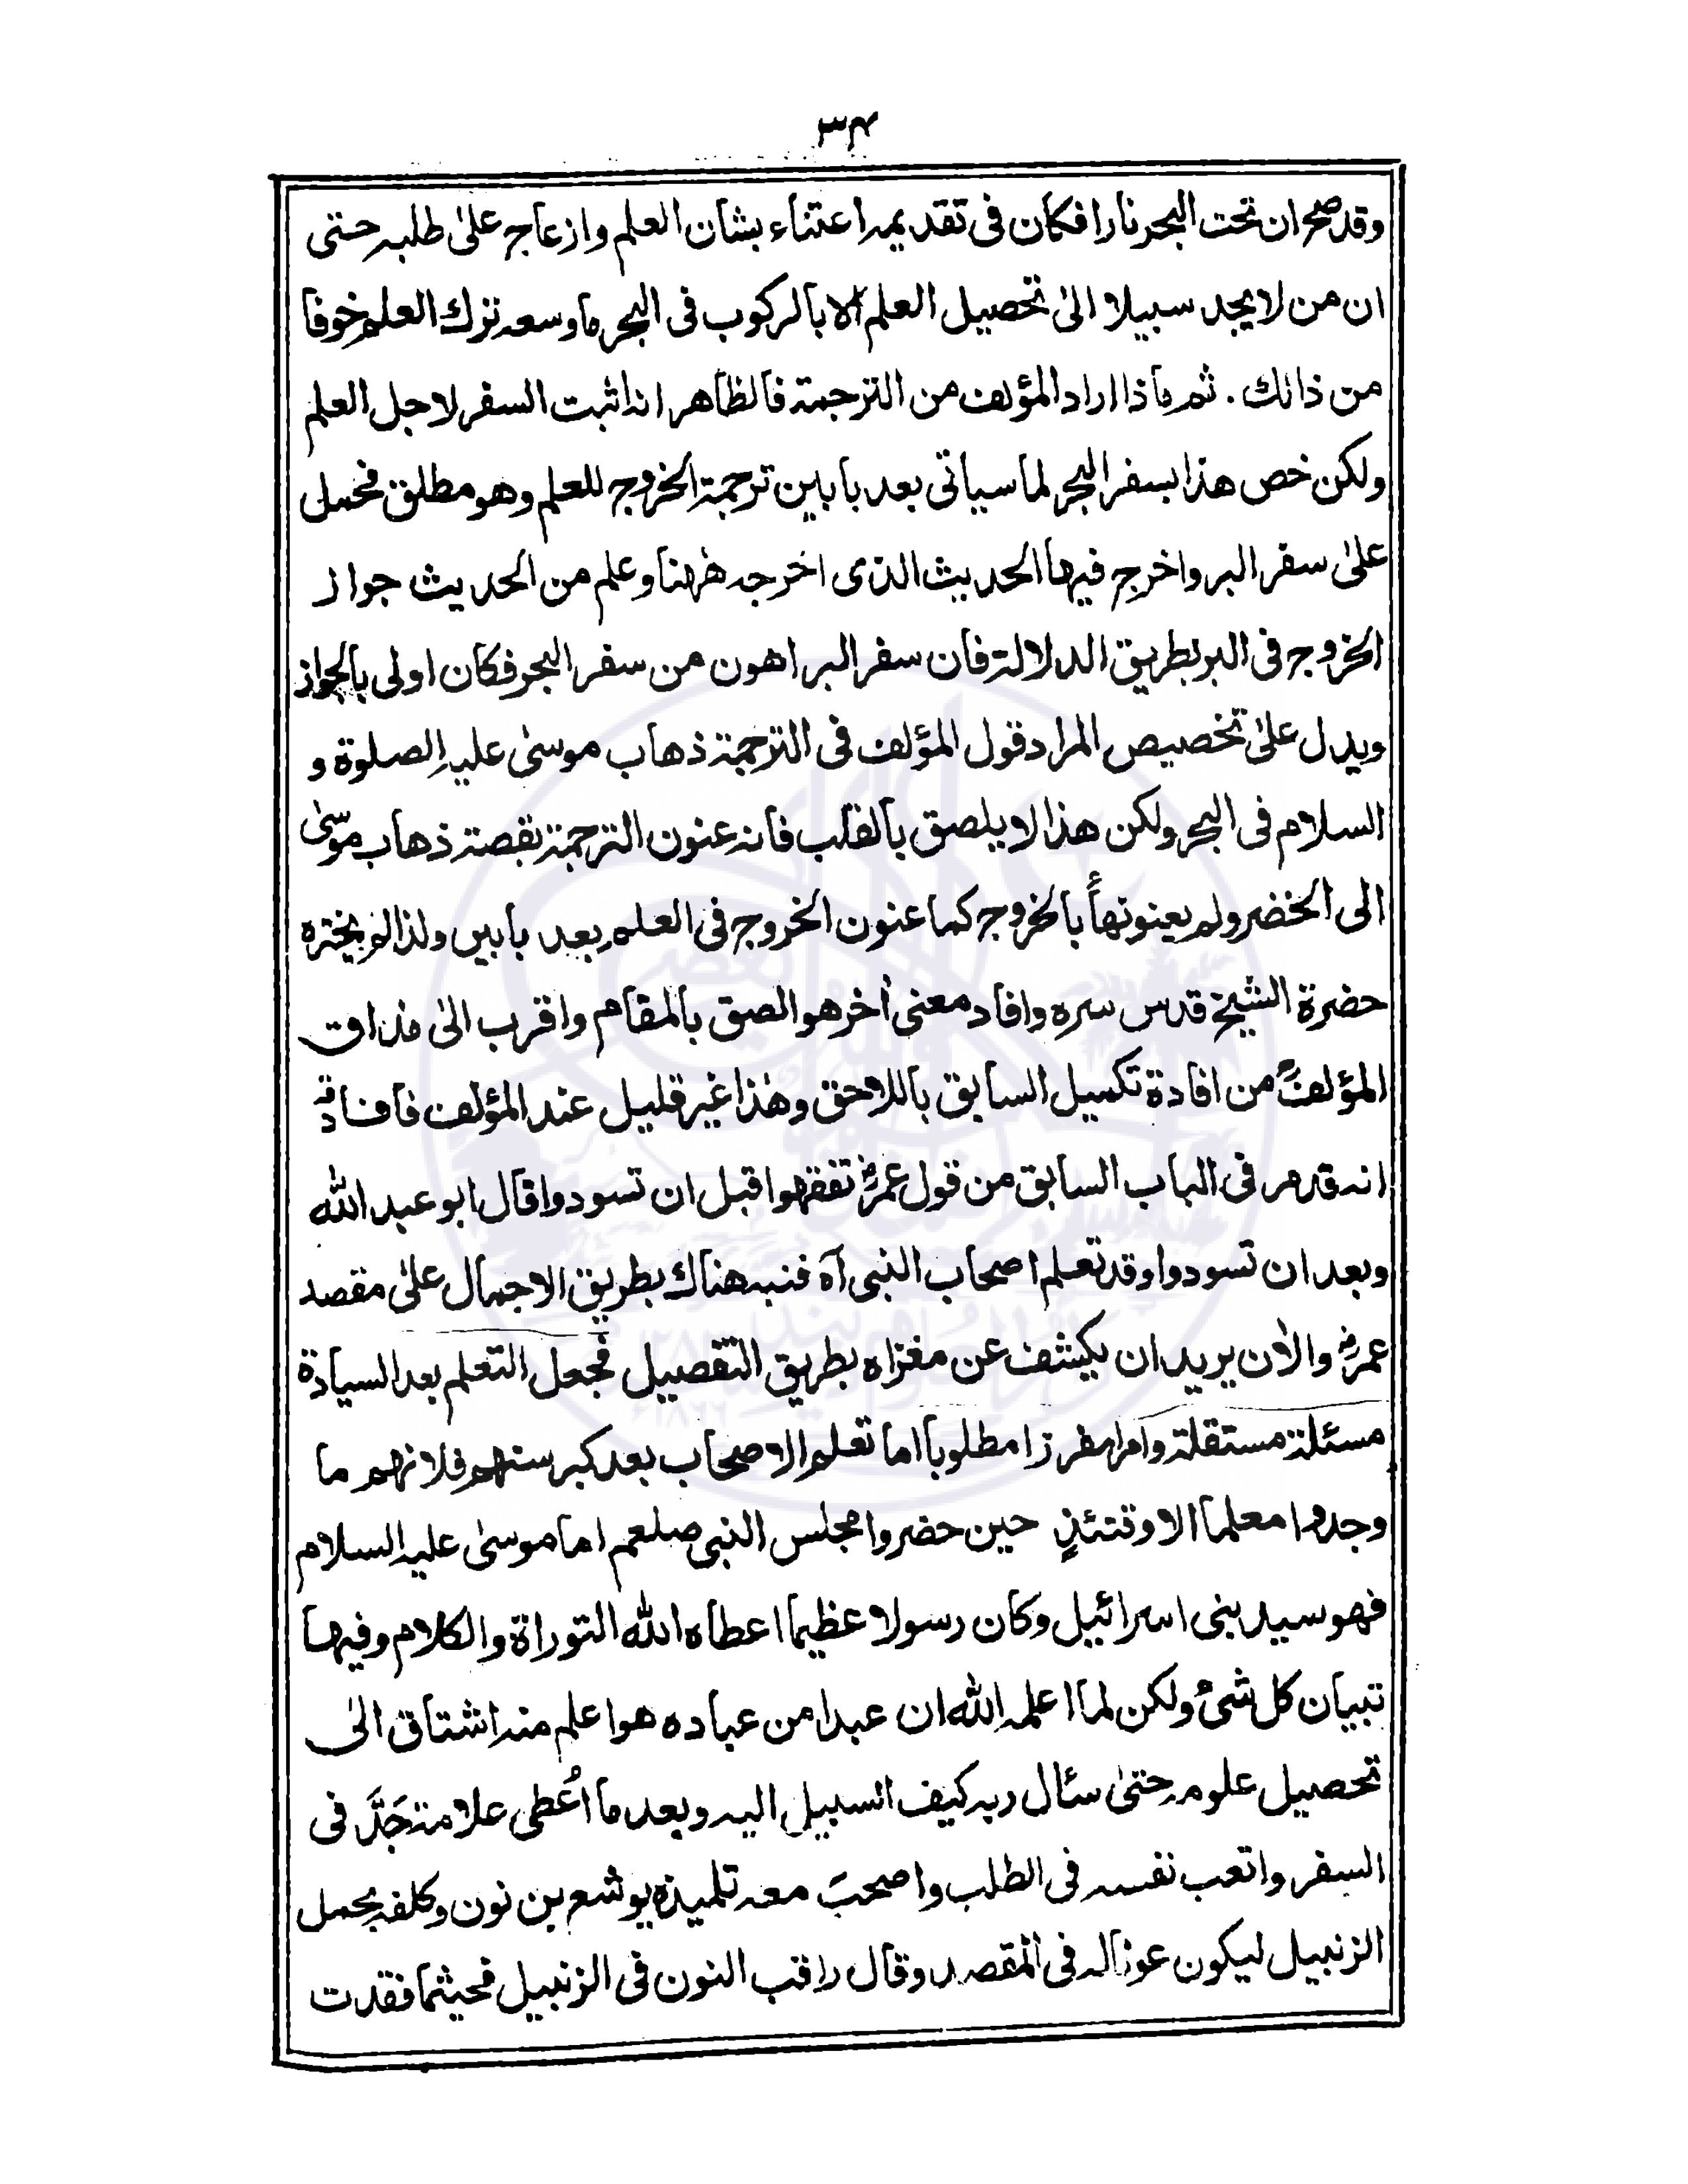 ٣٤
وقد صح ان تحت البحر نارا فكان فى تقديمه اعتناء بشان العلم وازعاج علىٰ طلبه حتى
ان من لا يجد سبيلا الىٰ تحصيل العلم الا بالركوب فى البحر ما وسعه ترك العلم خوفا
من ذالك . ثم ماذا اراد المؤلف من الترجمة فالظاهر انه اثبت السفر لاجل العلم
ولكن خص هذا بسفر البحر لما سياتى بعد بابين ترجمة الخروج للعلم وهو مطلق فحمل
علىٰ سفر البر واخرج فيها الحديث الذى اخرجه هٰهنا وعلم من الحديث جواز
الخروج فى البر بطريق الدلالة فان سفر البر اهون من سفر البحر فكان اولى بالجواز
ويدل علىٰ تخصيص المراد قول المؤلف فى الترجمة ذهاب موسىٰ عليه الصلوة و
السلام فى البحر ولكن هذا لا يلصق بالقلب فانه عنون الترجمة بقصة ذهاب موسىٰ
الى الخضر ولم يعنونها بالخروج كما عنون الخروج فى العلم بعد بابين ولذا لم يختره
حضرة الشيخ قدس سره وافاد معنى أخر هو الصق بالمقام واقرب الىٰ مذاق
المؤلفؒ من افادة تكميل السابق باللاحق وهٰذا غير قليل عند المؤلف فافاد
انه قد مر فى الباب السابق من قول عمرؓ تفقهوا قبل ان تسودوا قال ابو عبد الله
وبعد ان تسودوا وقد تعلم اصحاب النبى آه فنبه هناك بطريق الاجمال علىٰ مقصد
عمرؓ والاٰن يريد ان يكشف عن مغزاه بطريق التفصيل فجعل التعلم بعد السيادة
مسئلة مستقلة وامرا مفرزا مطلوبا اما تعلم الاصحاب بعد كبر سنهم فلانهم ما
وجدوا معلما الا وقتئذٍ حين حضروا مجلس النبى صلعم اما موسىٰ عليه السلام
فهو سيد بنى اسرائيل وكان رسولا عظيما اعطاه الله التوراة والكلام وفيها
تبيان كل شىء ولكن لما اعلمه الله ان عبدا من عباده هو اعلم منه اشتاق الىٰ
تحصيل علومه حتىٰ سئال ربه كيف السبيل اليه وبعد ما اُعطى علامة جَدَّ فى
السفر واتعب نفسه فى الطلب واصحبَ معه تلميذه يوشع بن نون وكلفه بحمل
الزنبيل ليكون عونا له فى المقصد وقال راقب النون فى الزنبيل فحيثما فقدت